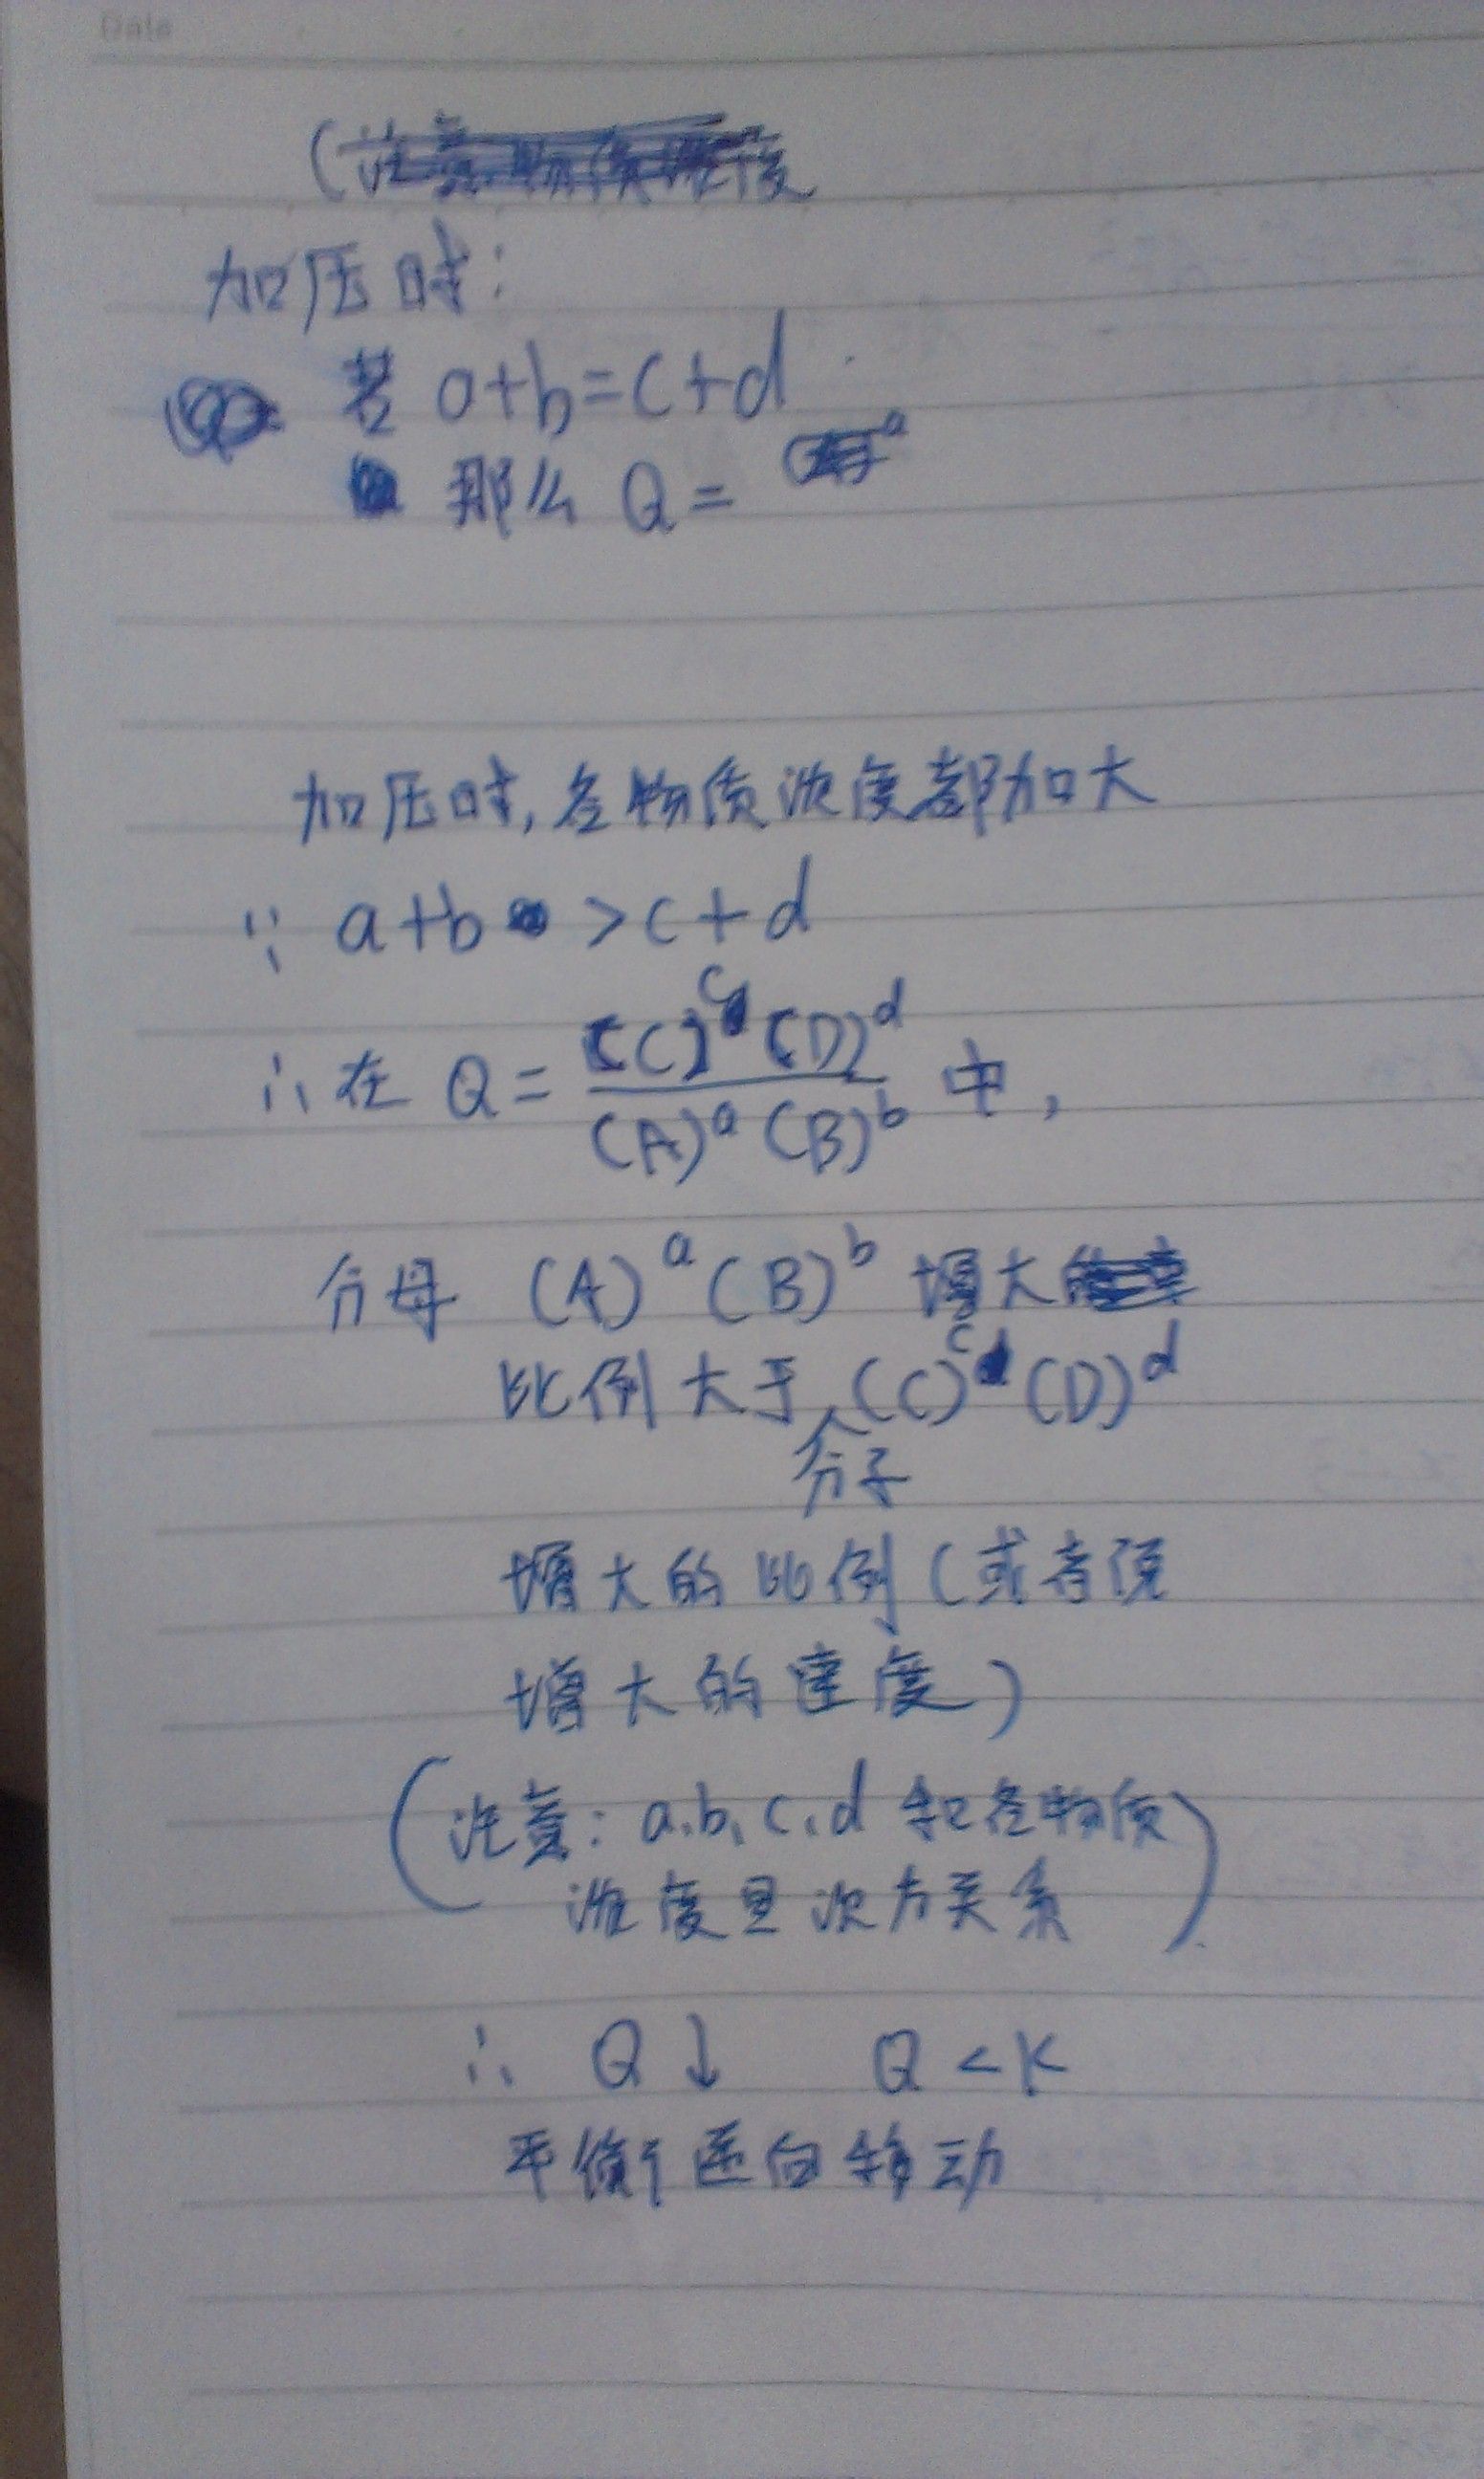 Date
加压时:
若 a+b=c+d
那么 Q=
加压时,各物质浓度都加大
∵ a+b >c+d
∴在 Q= [C]^c (D)^d / (A)^a (B)^b 中,
分母 (A)^a (B)^b 增大
比例大于 分子 (C)^c (D)^d
增大的比例(或者说
增大的速度)
(注意: a、b、c、d 和各物质
浓度是次方关系)
∴ Q↓ Q<K
平衡逆向移动